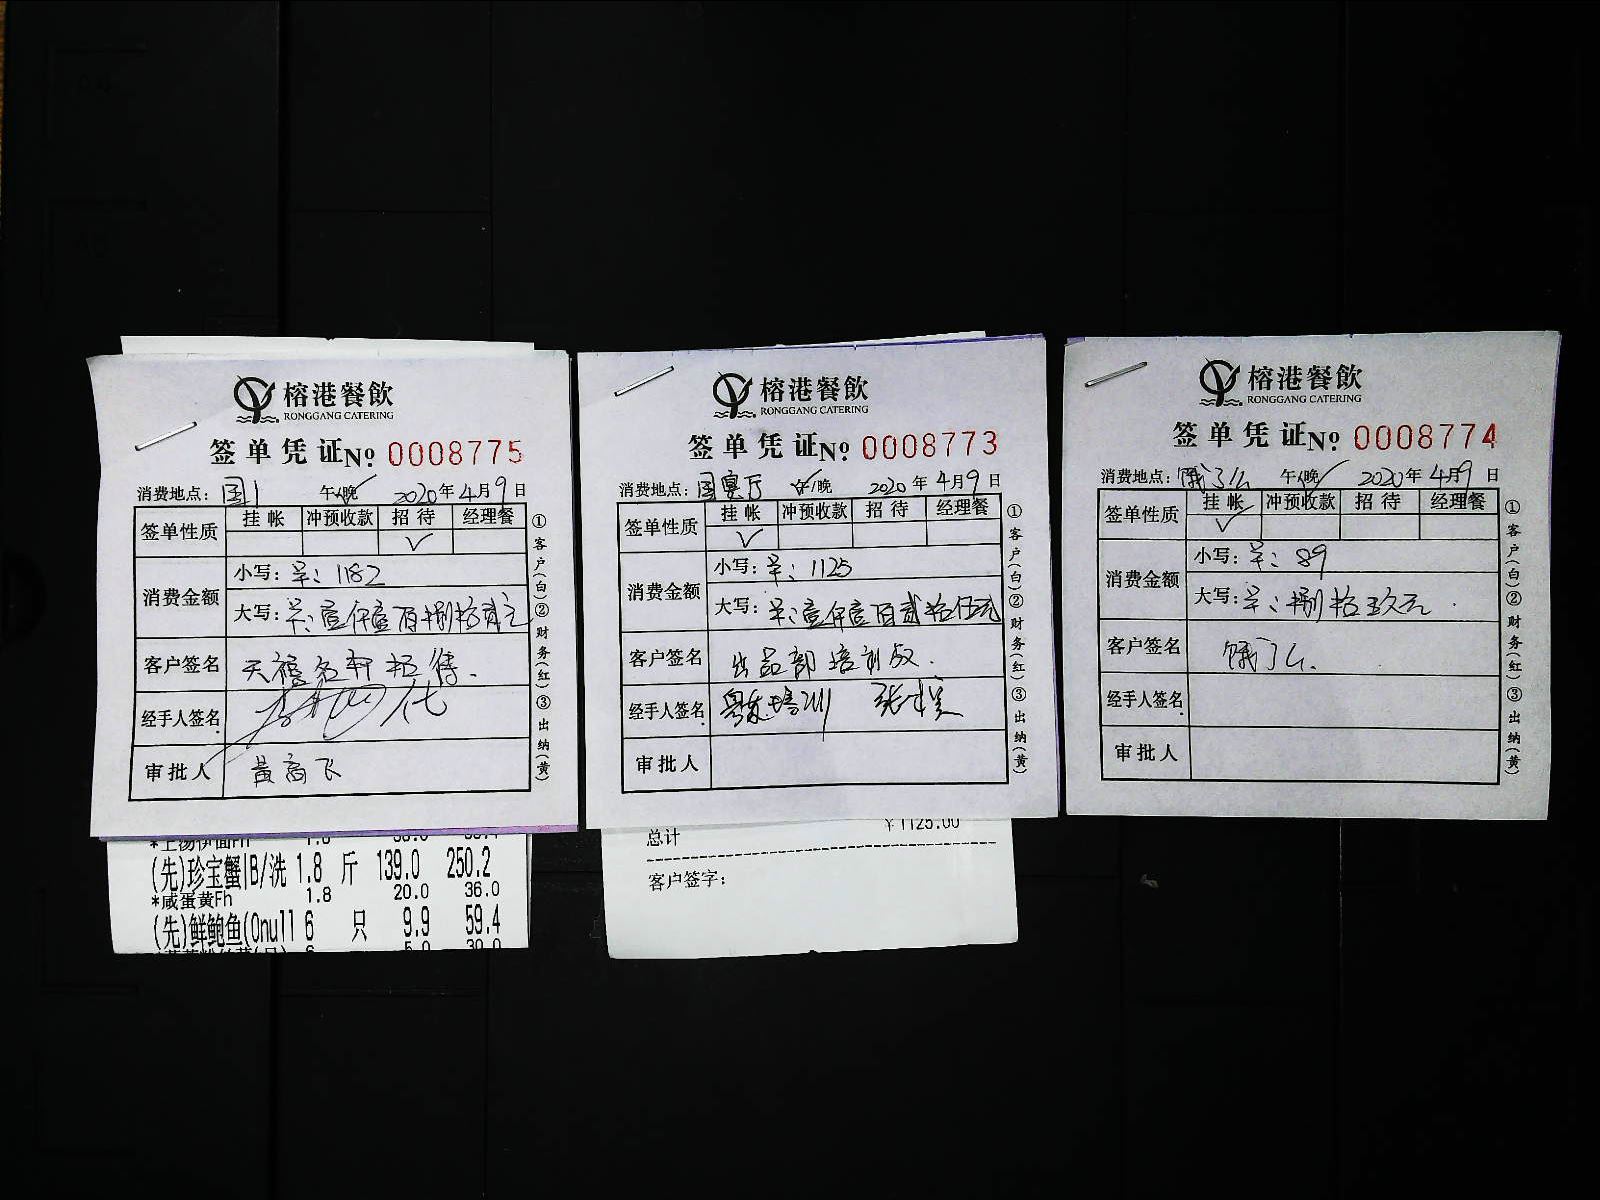 榕港餐飲
RONGGANG CATERING
签单凭证№ 0008775
消费地点：国1 午/晚 2020年4月9日
签单性质 挂帐 冲预收款 招待 经理餐
✓
消费金额
小写：羊：1182
大写：羊：壹仟壹百捌拾贰元
客户签名 天福名轩招待.
经手人签名 代
审批人 黄高飞
①客户(白)②财务(红)③出纳(黄)
(先)珍宝蟹|B/洗 1.8 斤 139.0 250.2
*咸蛋黄Fh 1.8 20.0 36.0
(先)鲜鲍鱼(Onull 6 只 9.9 59.4
榕港餐飲
RONGGANG CATERING
签单凭证№ 0008773
消费地点：国宴厅 午/晚 2020年4月9日
签单性质 挂帐 冲预收款 招待 经理餐
✓
消费金额
小写：羊：1125
大写：羊：壹仟壹百贰拾伍元
客户签名 出品部培训
经手人签名 培训
审批人
①客户(白)②财务(红)③出纳(黄)
总计 ¥1125.00
客户签字：
榕港餐飲
RONGGANG CATERING
签单凭证№ 0008774
消费地点：饿了么 午/晚 2020年4月9日
签单性质 挂帐 冲预收款 招待 经理餐
✓
消费金额
小写：羊：89
大写：羊：捌拾玖元.
客户签名 饿了么.
经手人签名
审批人
①客户(白)②财务(红)③出纳(黄)